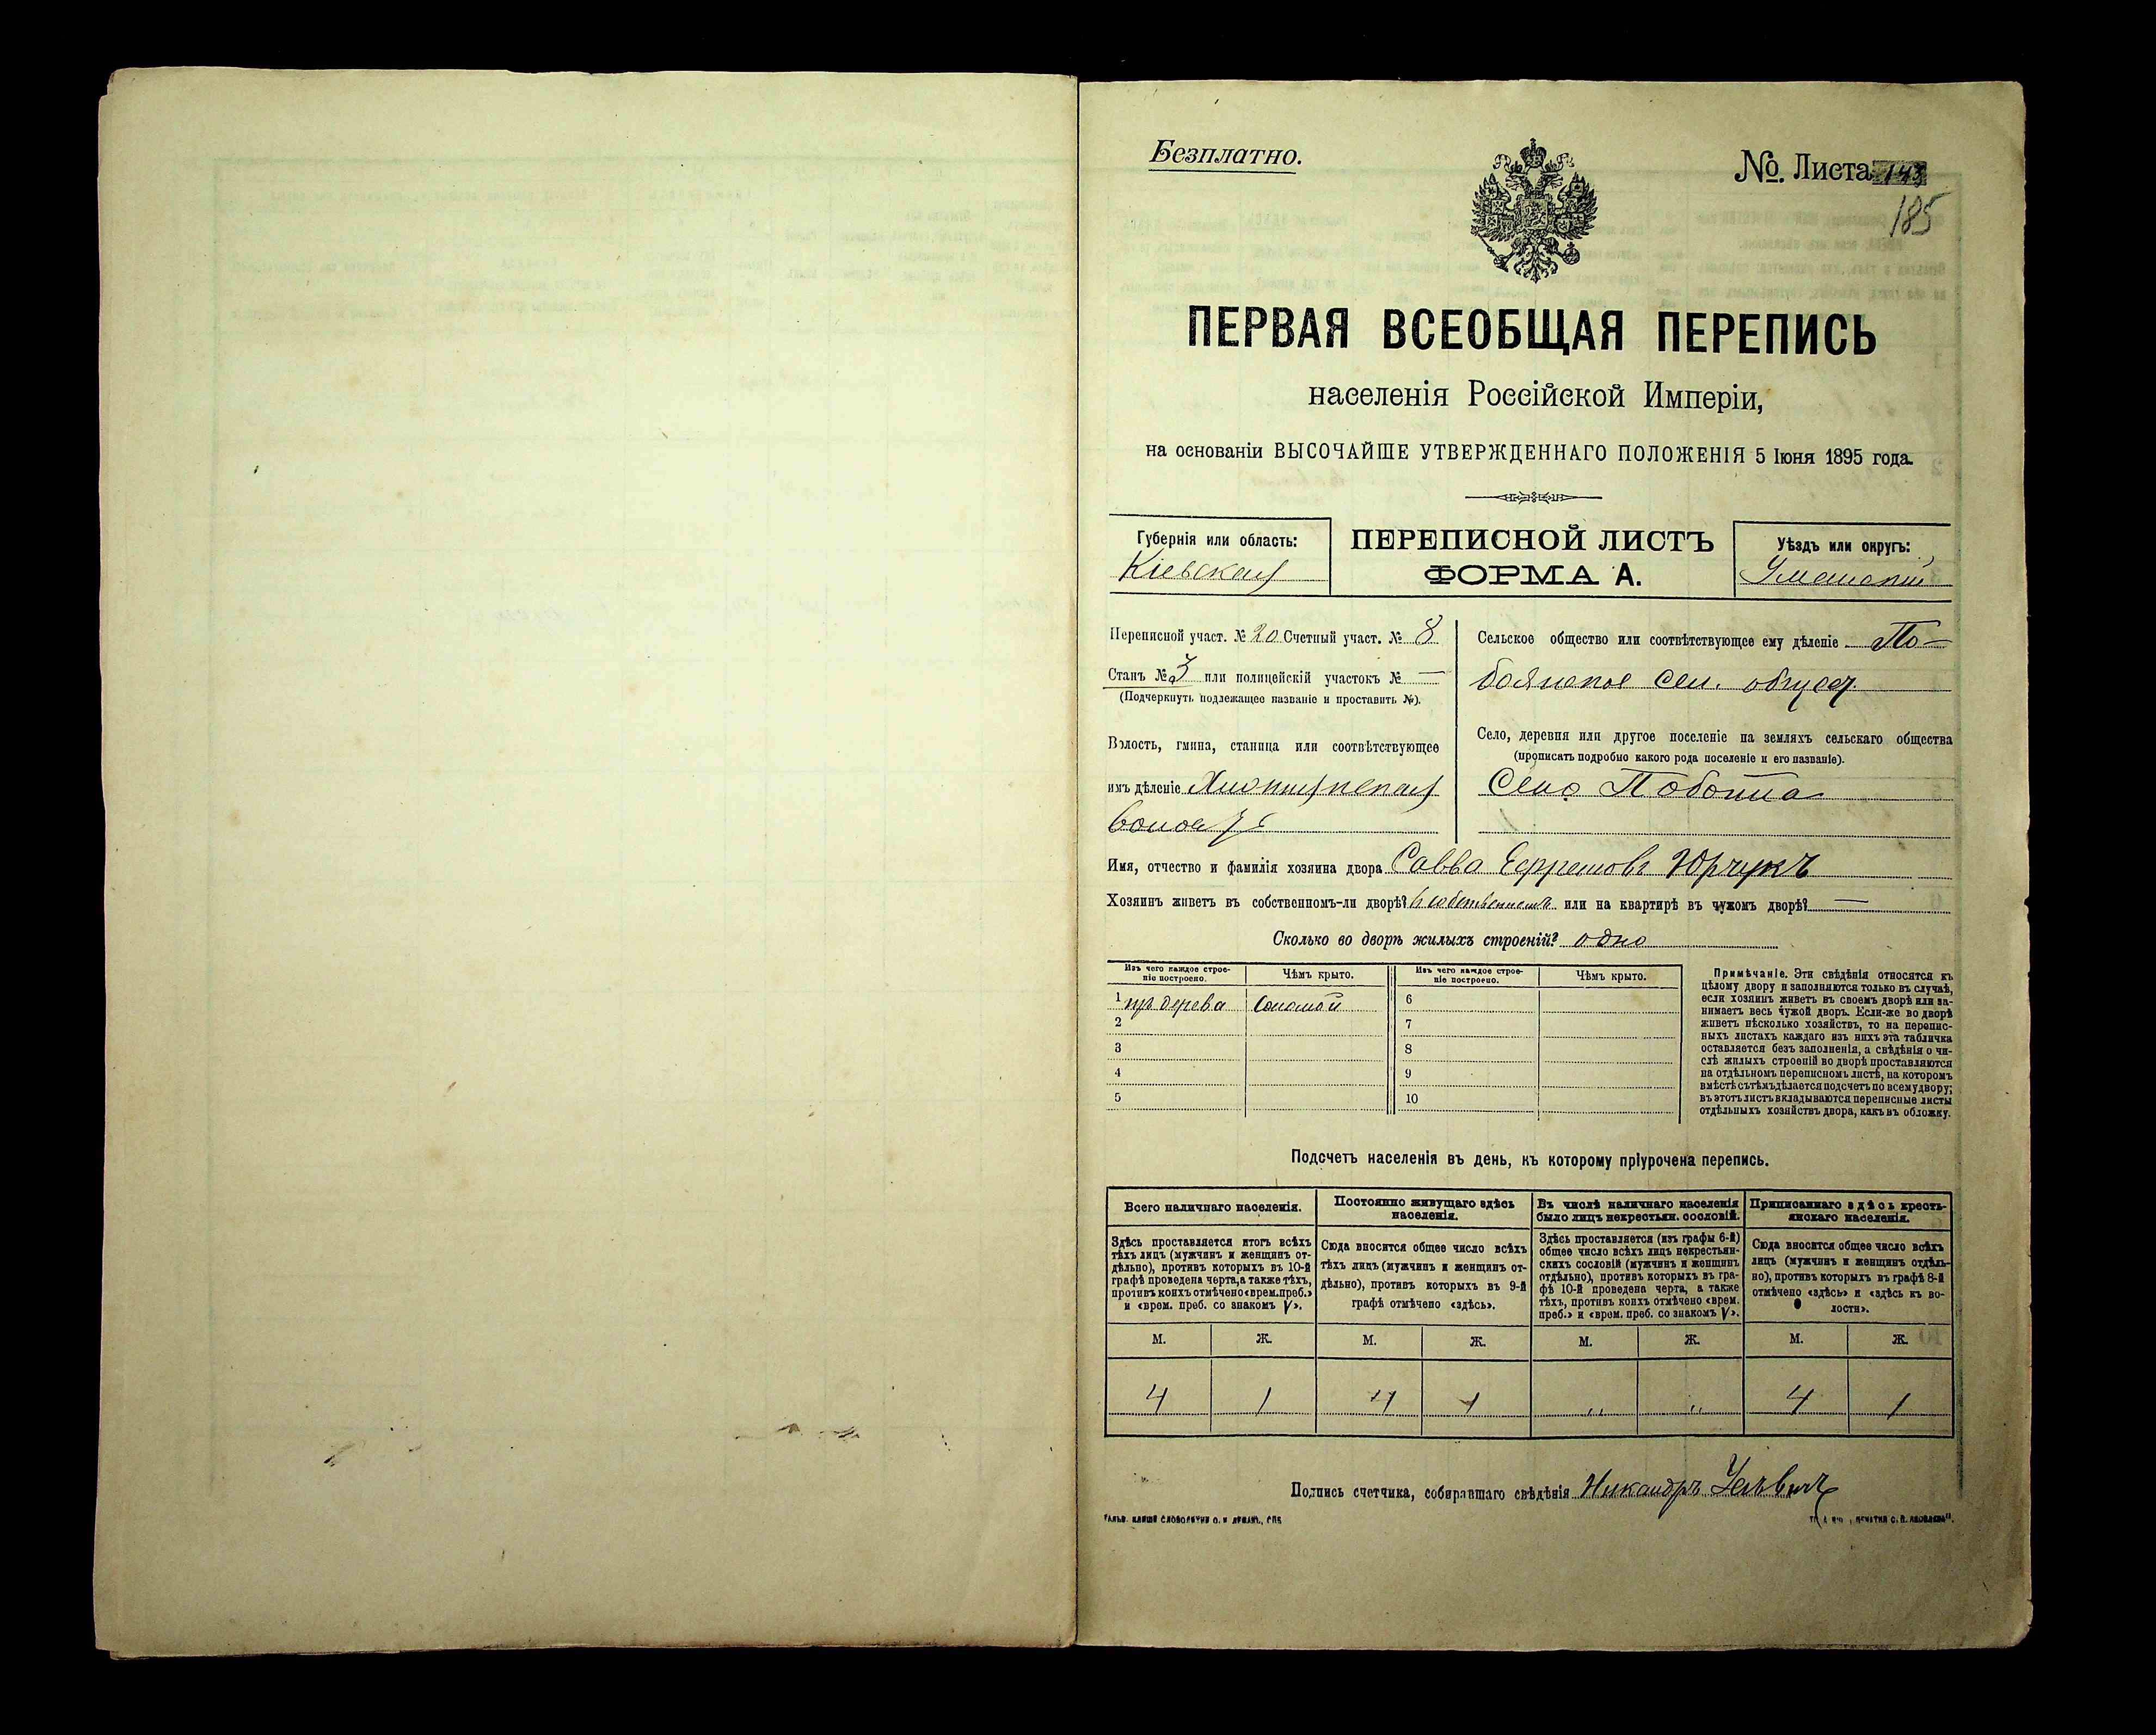 Безплатно.
№ Листа 143
185
ПЕРВАЯ ВСЕОБЩАЯ ПЕРЕПИСЬ
населенія Россійской Имперіи,
на основаніи ВЫСОЧАЙШЕ УТВЕРЖДЕННАГО ПОЛОЖЕНІЯ 5 Іюня 1895 года.
Губернія или область:
Кіевская
ПЕРЕПИСНОЙ ЛИСТЪ
ФОРМА А.
Уѣздъ или округъ:
Уманскій
Переписной участ. № 20 Счетный участ. № 8
Станъ № 3 или полицейскій участокъ № —
(Подчеркнуть подлежащее названіе и проставить №).
Волость, гмина, станица или соотвѣтствующее
имъ дѣленіе
волость
Сельское общество или соотвѣтствующее ему дѣленіе По-
боянское сел. общест.
Село, деревня или другое поселеніе на земляхъ сельскаго общества
(прописать подробно какого рода поселеніе и его названіе).
Село Побойна
Имя, отчество и фамилія хозяина двора Савва Ефремовъ Юрчукъ
Хозяинъ живетъ въ собственномъ-ли дворѣ? въ собственномъ или на квартирѣ въ чужомъ дворѣ? —
Сколько во дворѣ жилыхъ строеній? одно
Изъ чего каждое строе-
ніе построено.
Чѣмъ крыто.
Изъ чего каждое строе-
ніе построено.
Чѣмъ крыто.
1 изъ дерева соломой 6
2 7
3 8
4 9
5 10
Примѣчаніе. Эти свѣдѣнія относятся къ
цѣлому двору и заполняются только въ случаѣ,
если хозяинъ живетъ въ своемъ дворѣ или за-
нимаетъ весь чужой дворъ. Если-же во дворѣ
живетъ нѣсколько хозяйствъ, то на перепис-
ныхъ листахъ каждаго изъ нихъ эта табличка
оставляется безъ заполненія, а свѣдѣнія о чи-
слѣ жилыхъ строеній во дворѣ проставляются
на отдѣльномъ переписномъ листѣ, на которомъ
вмѣстѣ съ тѣмъ дѣлается подсчетъ по всему двору;
въ этотъ листъ вкладываются переписные листы
отдѣльныхъ хозяйствъ двора, какъ въ обложку.
Подсчетъ населенія въ день, къ которому пріурочена перепись.
Всего наличнаго населенія.
Здѣсь проставляется итогъ всѣхъ
тѣхъ лицъ (мужчинъ и женщинъ от-
дѣльно), противъ которыхъ въ 10-й
графѣ проведена черта, а также тѣхъ,
противъ коихъ отмѣчено «врем. преб.»
и «врем. преб. со знакомъ V».
Постоянно живущаго здѣсь
населенія.
Сюда вносится общее число всѣхъ
тѣхъ лицъ (мужчинъ и женщинъ от-
дѣльно), противъ которыхъ въ 9-й
графѣ отмѣчено «здѣсь».
Въ числѣ наличнаго населенія
было лицъ некрестьян. сословій.
Здѣсь проставляется (изъ графы 6-й)
общее число всѣхъ лицъ некрестьян-
скихъ сословій (мужчинъ и женщинъ
отдѣльно), противъ которыхъ въ гра-
фѣ 10-й проведена черта, а также
тѣхъ, противъ коихъ отмѣчено «врем.
преб.» и «врем. преб. со знакомъ V».
Приписаннаго здѣсь кресть-
янскаго населенія.
Сюда вносится общее число всѣхъ
лицъ (мужчинъ и женщинъ отдѣль-
но), противъ которыхъ въ графѣ 8-й
отмѣчено «здѣсь» и «здѣсь къ во-
лости».
М. Ж. М. Ж. М. Ж. М. Ж.
4 1 4 1 „ „ 4 1
Подпись счетчика, собиравшаго свѣдѣнія Никандръ